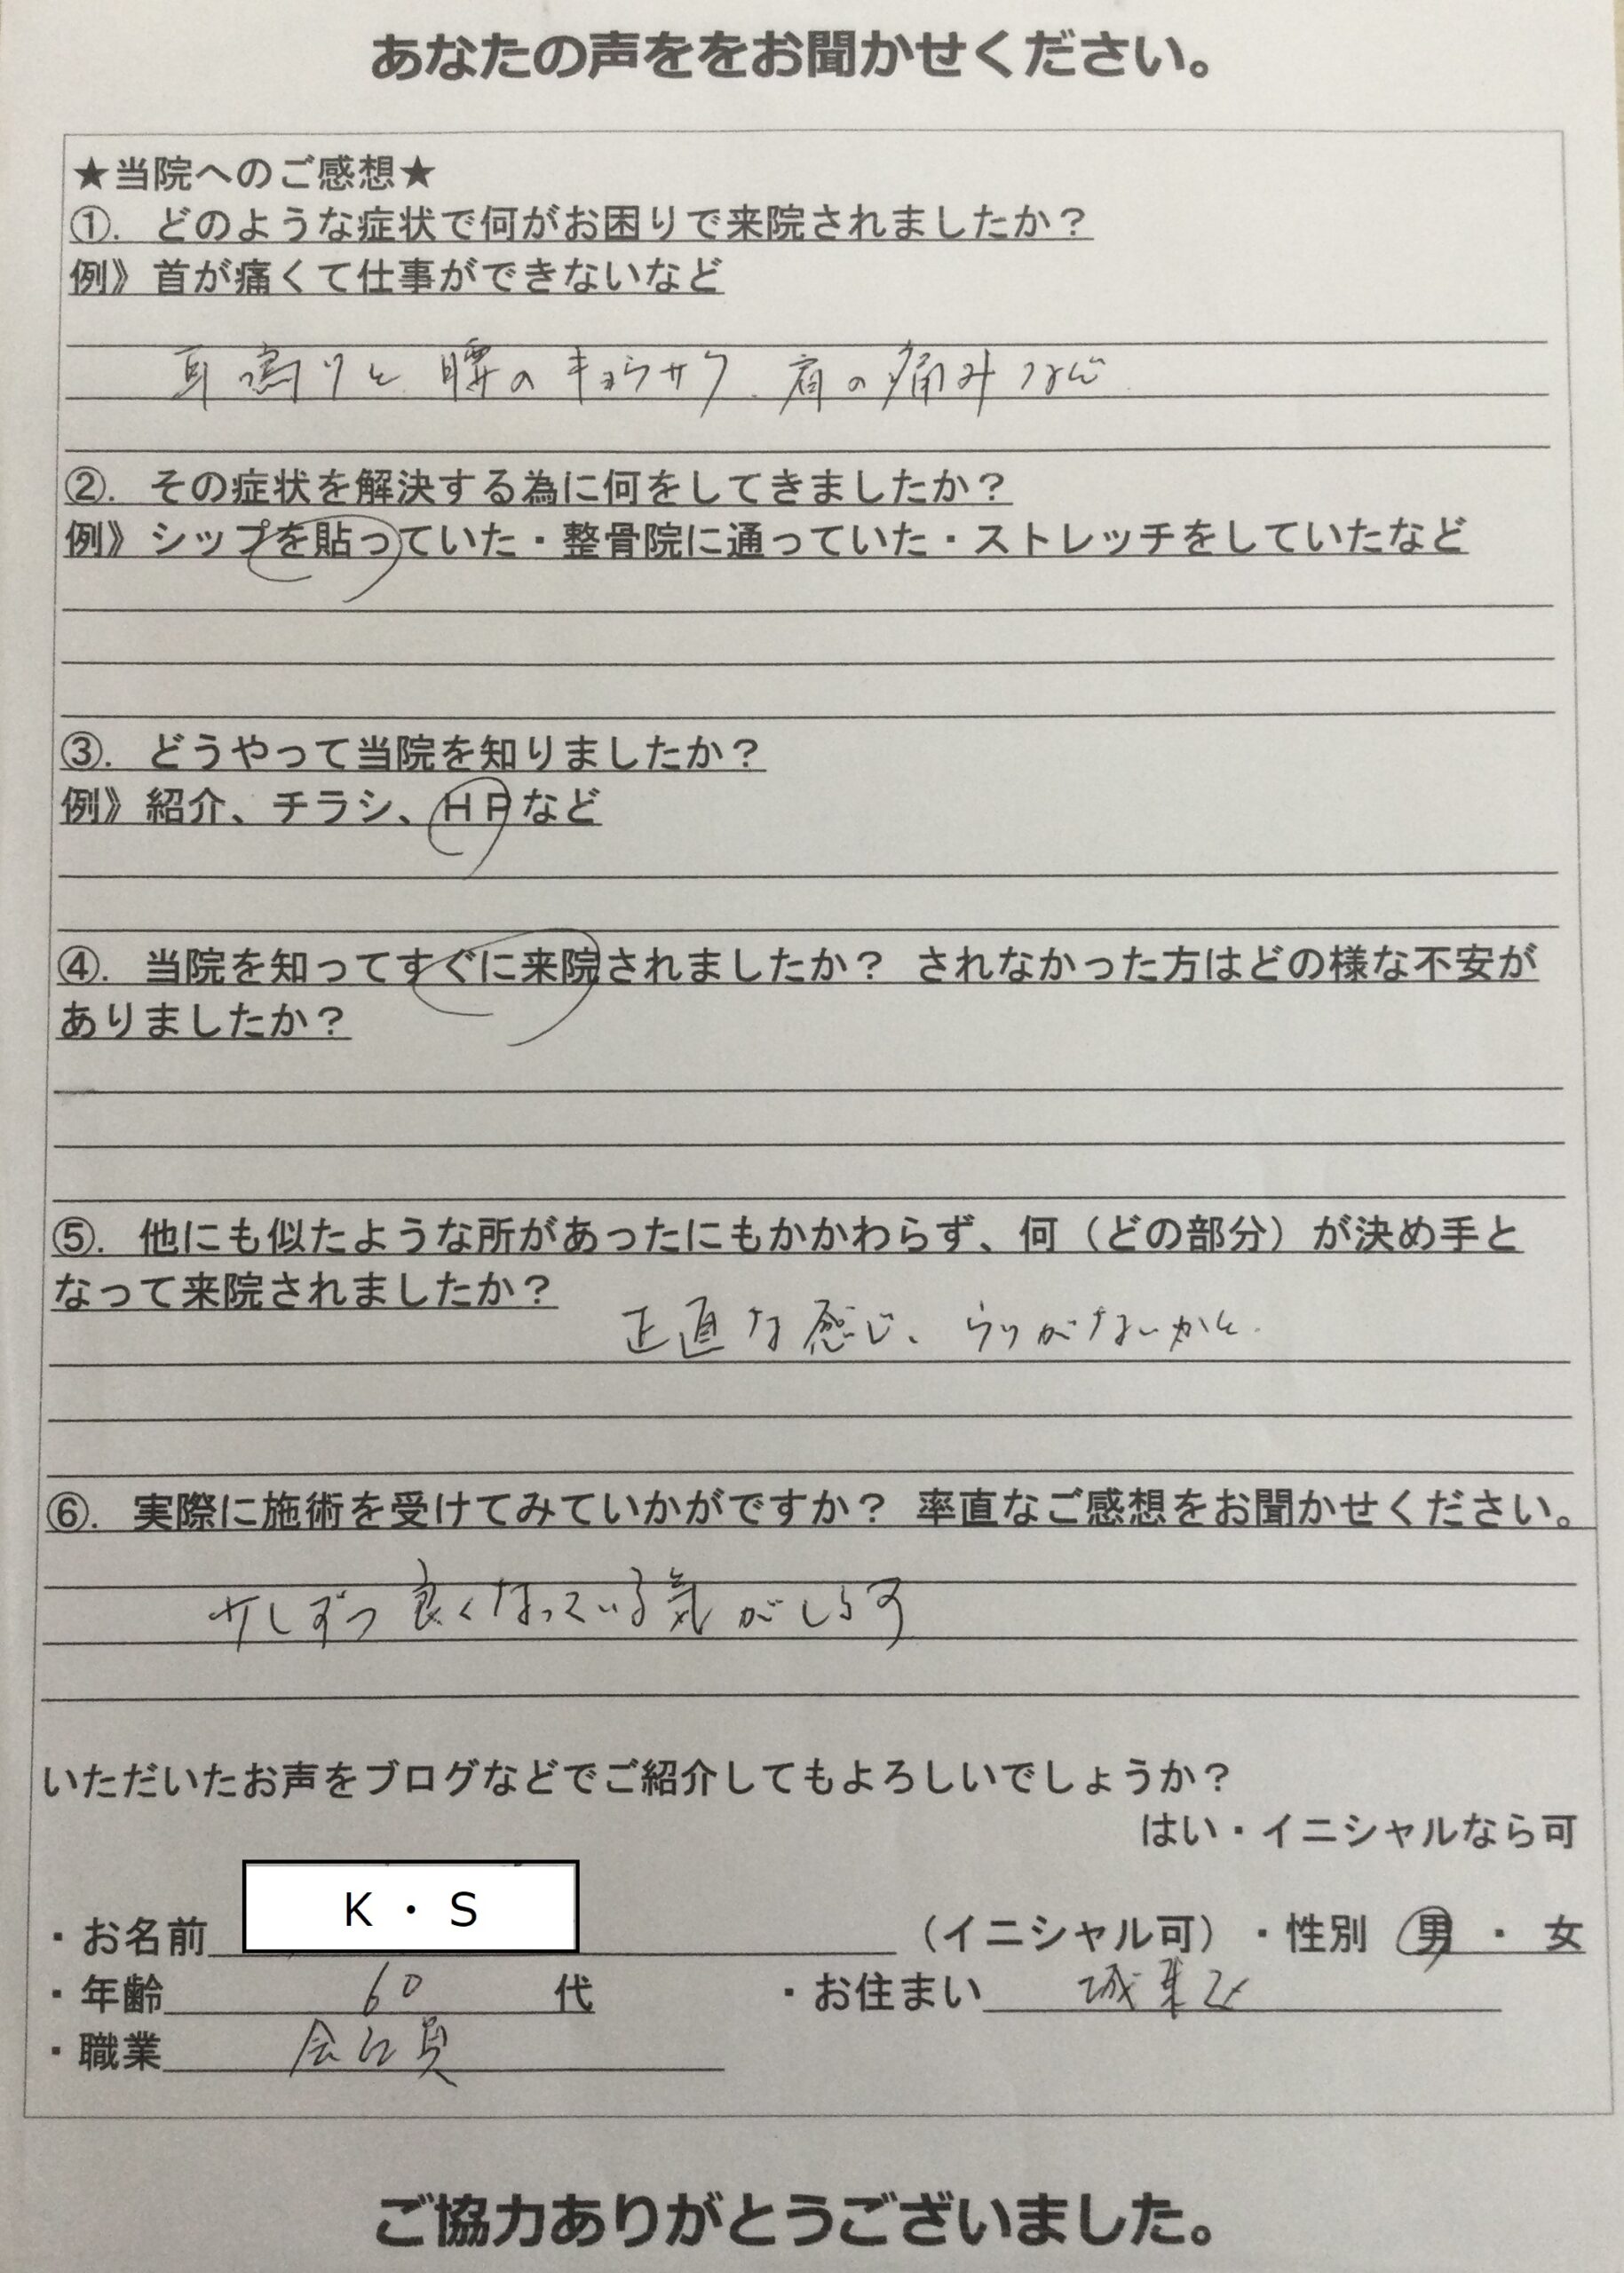 あなたの声ををお聞かせください。
★当院へのご感想★
①．どのような症状で何がお困りで来院されましたか？
例》首が痛くて仕事ができないなど
耳鳴りと腰のキョウサク、肩の痛みなど
②．その症状を解決する為に何をしてきましたか？
例》シップを貼っていた・整骨院に通っていた・ストレッチをしていたなど
③．どうやって当院を知りましたか？
例》紹介、チラシ、ＨＰなど
④．当院を知ってすぐに来院されましたか？ されなかった方はどの様な不安が
ありましたか？
⑤．他にも似たような所があったにもかかわらず、何（どの部分）が決め手と
なって来院されましたか？
正直な感じ、ウソがないかと.
⑥．実際に施術を受けてみていかがですか？ 率直なご感想をお聞かせください。
少しずつ良くなっている気がします
いただいたお声をブログなどでご紹介してもよろしいでしょうか？
はい・イニシャルなら可
・お名前 Ｋ・Ｓ （イニシャル可）・性別 男 ・ 女
・年齢 60 代 ・お住まい 城東区
・職業 会社員
ご協力ありがとうございました。